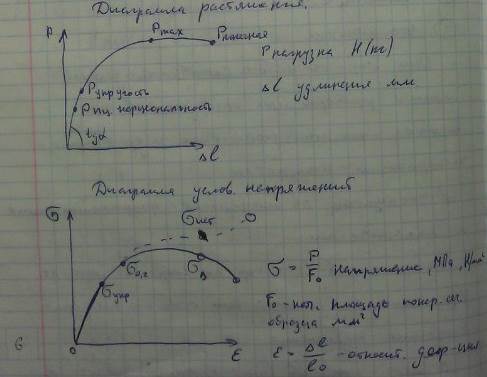 Диаграмма растяжения.
P
Pmax
P нагрузка Н(кг)
Pупругость
Pпц. порциональность
Δl удлинения мм
tgα
Δl
Диаграмма услов. напряжений
σ
σист
σ0,2
σв
σ = P/F₀ напряжение, МПа, Н/мм²
σупр
F₀ - нач. площадь попер. сеч.
образца мм²
0
ε
ε = Δl/l₀ - относит. деф-ция
6